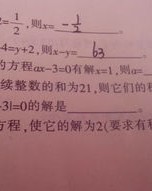 =-1/2, 则x= -1/2 。
4=y+2, 则x-y= 63 。
的方程ax-3=0有解x=1, 则a=
续整数的和为21, 则它们的
-3|=0的解是 。
方程, 使它的解为2(要求有